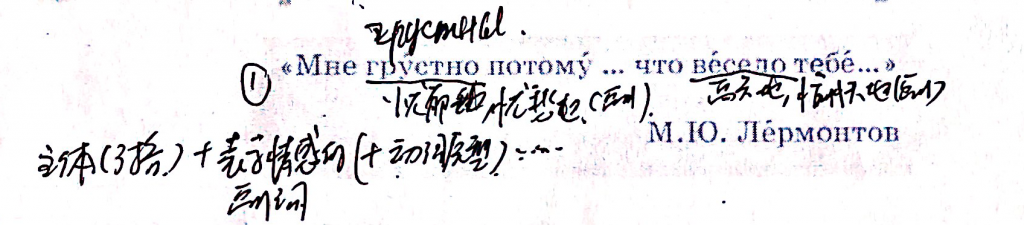 грустны.
① «Мне гру́стно потому́ ... что ве́село тебе́...»
忧郁地,忧愁地(副词). 高兴地,愉快地(副词)
М.Ю. Ле́рмонтов
主体(3格)+表示情感的(+动词原型)……
副词